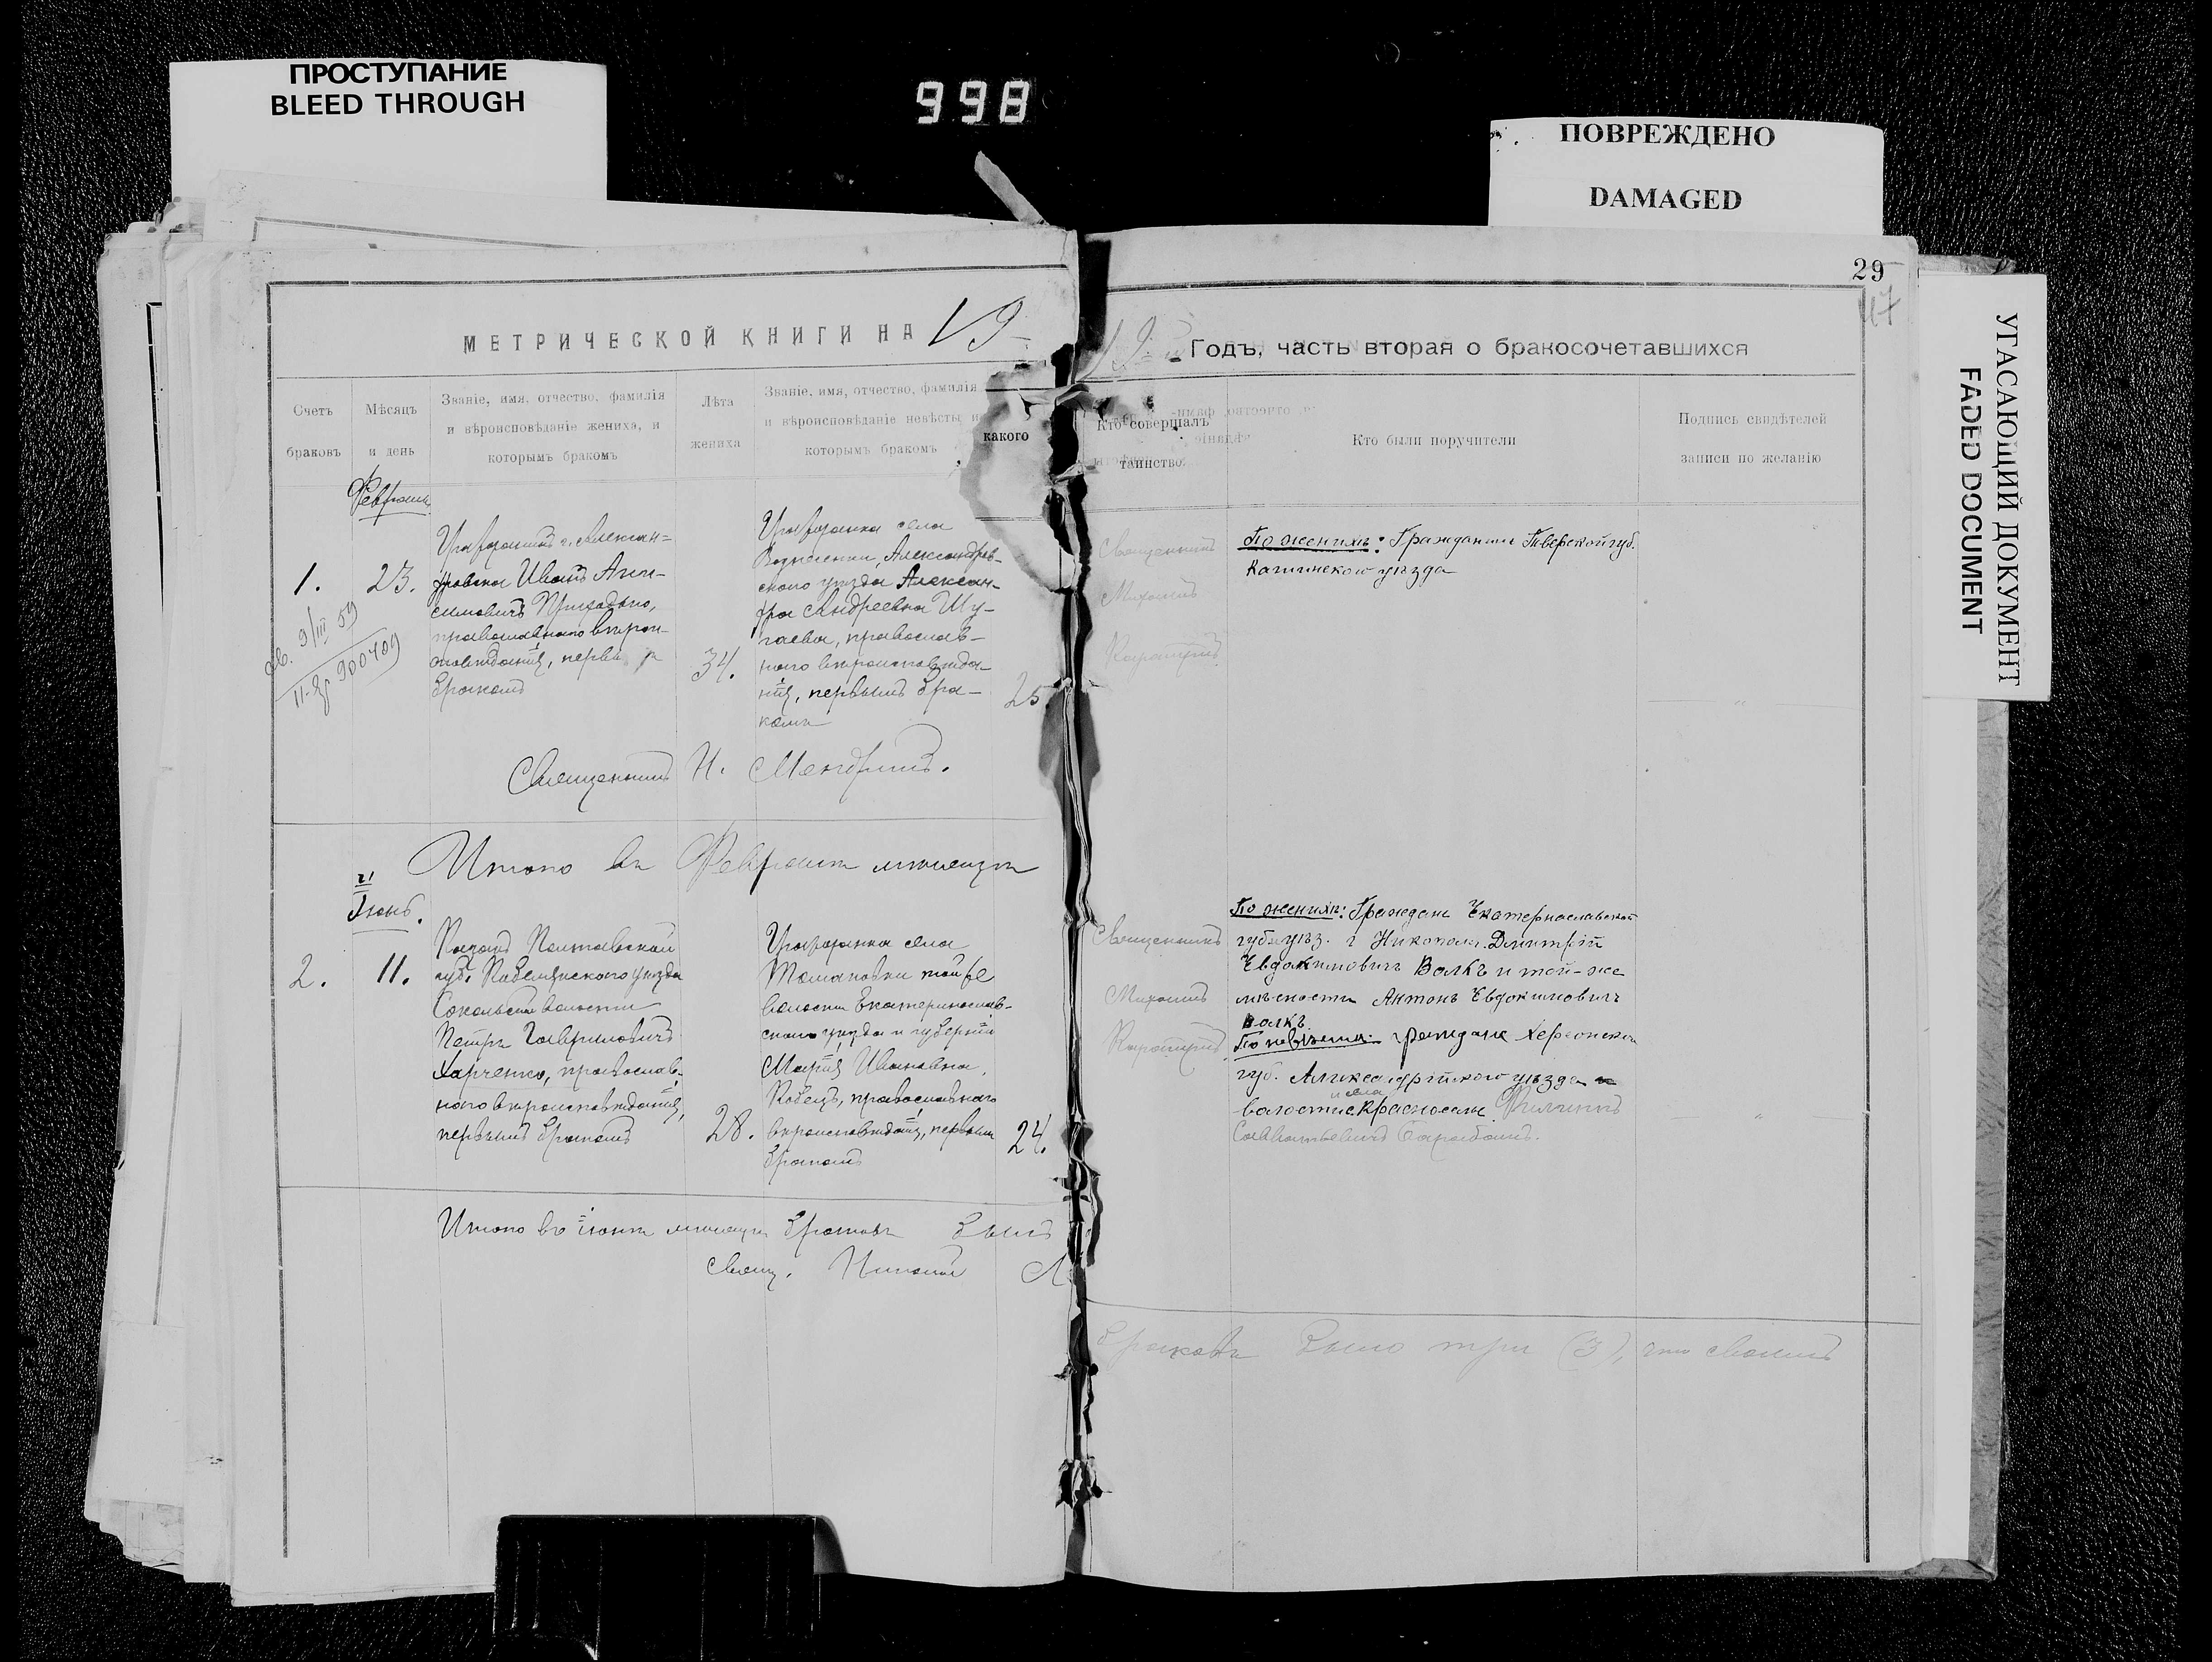 ПРОСТУПАНИЕ
BLEED THROUGH
998
ПОВРЕЖДЕНО
DAMAGED
УГАСАЮЩИЙ ДОКУМЕНТ
FADED DOCUMENT
29
47
МЕТРИЧЕСКОЙ КНИГИ НА 19
19 Годъ, часть вторая о бракосочетавшихся
Счетъ
браковъ
Мѣсяцъ
и день
Званіе, имя, отчество, фамилія
и вѣроисповѣданіе жениха, и
которымъ бракомъ
Лѣта
жениха
Званіе, имя, отчество, фамилія
и вѣроисповѣданіе невѣсты, и
которымъ бракомъ
какого
Кто совершалъ
таинство
Кто были поручители
Подпись свидѣтелей
записи по желанію
Февраль
1.
23.
Гражданинъ г. Алексан-
дровска Иванъ Ани-
симовичъ Приходько,
православнаго вѣрои-
сповѣданія, первы
бракомъ
34.
Гражданка села
Вознесенки, Александров-
скаго уѣзда Алексан-
дра Андреевна Шу-
гаева, православ-
наго вѣроисповѣда-
нія, первымъ бра-
комъ
25
Священникъ
Михаилъ
По женихѣ: Гражданинъ Тверской губ.
уѣзда
Священникъ Н.
Итого въ Февралѣ мѣсяцѣ
Іюнь.
2.
11.
Козакъ Полтавской
губ. Кобелякскаго уѣзда
Сокольской волости
Петръ Гавриловичъ
Харченко, православ-
наго вѣроисповѣданія,
первымъ бракомъ
28.
Гражданка села
Томаковки той же
волости Екатеринослав-
скаго уѣзда и губерніи
Марія Ивановна
Кобецъ, православнаго
вѣроисповѣданія, первымъ
бракомъ
24.
Священникъ
Михаилъ
По женихѣ: Граждане Екатеринославской
губ. и уѣз. г Никополя Дмитрій
Евдокимовичъ Волкъ и той-же
мѣсности Антонъ Евдокимовичъ
Волкъ.
По невѣстѣ: граждане Херсонской
губ. Александрійскаго уѣзда
волости и села Красноселье Филиппъ
Итого въ іюнѣ мѣсяцѣ браковъ былъ
свящ. Николай
браковъ было три (3), что своимъ